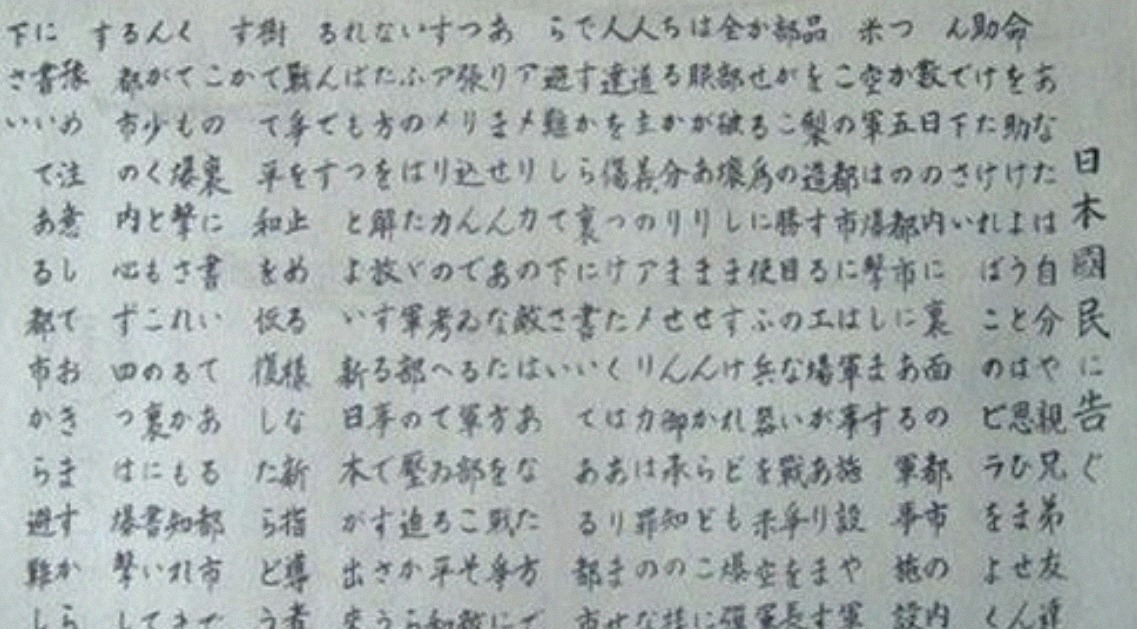 日本國民に告ぐ
あなたは自分や親兄弟友達
命を助けようとは思ひません
助けたければこのビラをよく
んで下さい
数日の内に裏面の都市の内
つか五の都市にある軍事施設
米空軍は爆擊します
この都市には軍事施設や軍
品を製造する工場があります
部がこの勝目のない戰爭を長
かせる為に使ふ兵器を米空軍
全部破壊しますけれども爆弾に
は眼がありませんからどこに
ちるか分りません御承知の様
人道主義のアメリカは罪のな
人達を傷つけたくはありませせ
ですから裏に書いてある都市
ら避難して下さい
アメリカの敵はあなた方で
ありませんあなた方を戰爭に
つ張り込んでゐる軍部こそ敵
すアメリカの考へてゐる平和
いふのはたゞ軍部の壓迫から
なた方を解放する事ですさう
ればもつとよい新日本が出來
るんです
戰爭を止める様な新指導者
樹てて平和を恢復したらどう
すか
この裏に書いてある都市で
くても爆擊されるかも知れま
んが少くともこの裏に書いて
る都市の内必ず四つは爆擊し
す
豫め注意しておきますから
に書いてある都市から避難し
下さい